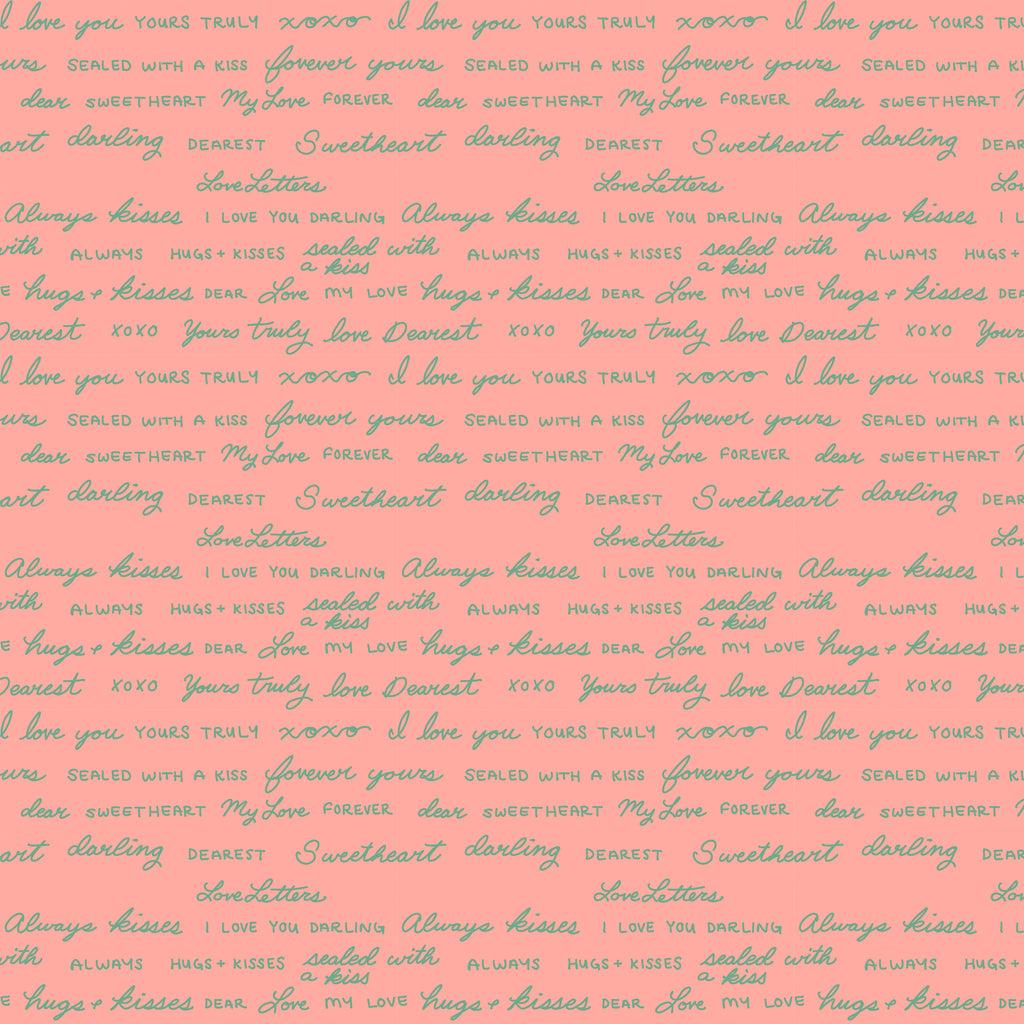 I love you YOURS TRULY xoxo I love you YOURS TRULY xoxo I love you YOURS TRU
urs SEALED WITH A KISS forever yours SEALED WITH A KISS forever yours SEALED WITH A KI
dear SWEETHEART My Love FOREVER dear SWEETHEART My Love FOREVER dear SWEETHEART M
art darling DEAREST Sweetheart darling DEAREST Sweetheart darling DEAR
Love Letters Love Letters Lo
Always kisses I LOVE YOU DARLING Always kisses I LOVE YOU DARLING Always kisses I L
with ALWAYS HUGS + KISSES sealed with ALWAYS HUGS + KISSES sealed with ALWAYS HUGS +
a kiss a kiss
E hugs + kisses DEAR Love MY LOVE hugs + kisses DEAR Love MY LOVE hugs + kisses DEA
Dearest XOXO Yours truly love Dearest XOXO Yours truly love Dearest XOXO Your
I love you YOURS TRULY xoxo I love you YOURS TRULY xoxo I love you YOURS TRU
urs SEALED WITH A KISS forever yours SEALED WITH A KISS forever yours SEALED WITH A KI
dear SWEETHEART My Love FOREVER dear SWEETHEART My Love FOREVER dear SWEETHEART M
art darling DEAREST Sweetheart darling DEAREST Sweetheart darling DEAR
Love Letters Love Letters Lo
Always kisses I LOVE YOU DARLING Always kisses I LOVE YOU DARLING Always kisses I L
with ALWAYS HUGS + KISSES sealed with ALWAYS HUGS + KISSES sealed with ALWAYS HUGS +
a kiss a kiss
E hugs + kisses DEAR Love MY LOVE hugs + kisses DEAR Love MY LOVE hugs + kisses DEA
Dearest XOXO Yours truly love Dearest XOXO Yours truly love Dearest XOXO Your
I love you YOURS TRULY xoxo I love you YOURS TRULY xoxo I love you YOURS TRU
urs SEALED WITH A KISS forever yours SEALED WITH A KISS forever yours SEALED WITH A KI
dear SWEETHEART My Love FOREVER dear SWEETHEART My Love FOREVER dear SWEETHEART M
art darling DEAREST Sweetheart darling DEAREST Sweetheart darling DEAR
Love Letters Love Letters Lo
Always kisses I LOVE YOU DARLING Always kisses I LOVE YOU DARLING Always kisses I L
with ALWAYS HUGS + KISSES sealed with ALWAYS HUGS + KISSES sealed with ALWAYS HUGS +
a kiss a kiss
E hugs + kisses DEAR Love MY LOVE hugs + kisses DEAR Love MY LOVE hugs + kisses DEA